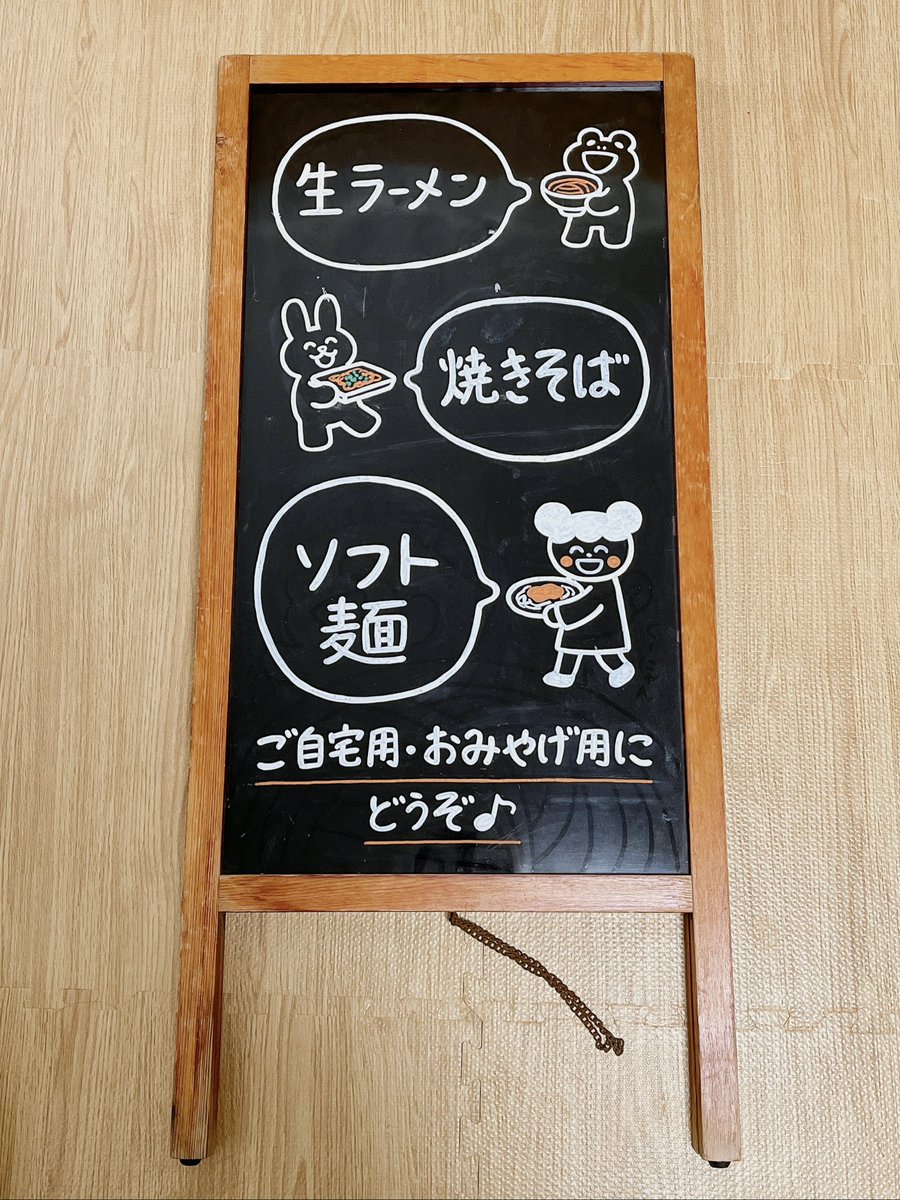 生ラーメン
焼きそば
ソフト
麺
ご自宅用・おみやげ用に
どうぞ♪